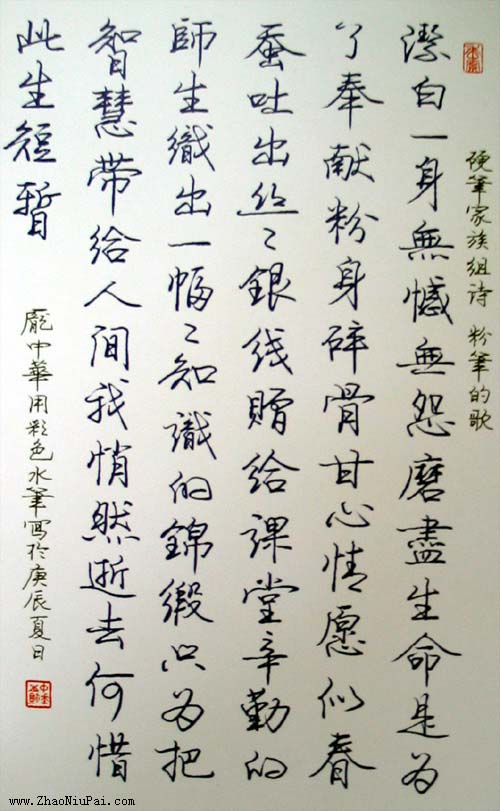 硬筆家族组诗 粉筆的歌
潔白一身無憾無怨磨盡生命是为
了奉献粉身碎骨甘心情愿似春
蚕吐出丝丶銀线贈给課堂辛勤的
師生織出一幅丶知識的錦緞只为把
智慧带给人间我悄然逝去何惜
此生短暫
龐中華用彩色水筆寫於庚辰夏日
www.ZhaoNiuPai.com